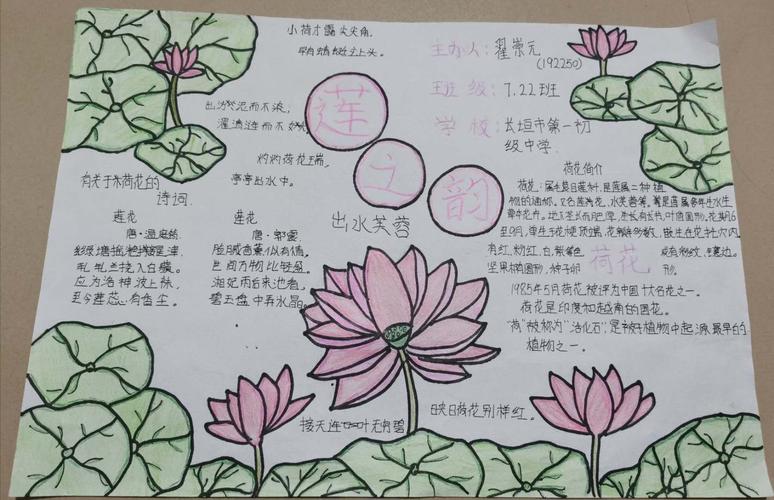 小荷才露尖尖角,
早有蜻蜓立上头。
出淤泥而不染,
濯清涟而不妖
灼灼荷花瑞,
亭亭出水中。
莲
之
韵
出水芙蓉
主办人: 翟崇元
(192250)
班级: 7.22班
学校: 长垣市第一初
级中学.
有关于荷花的
诗词.
莲花
唐·温庭筠
绿塘摇滟接星津,
轧轧兰桡入白蘋。
应为洛神波上袜,
至今莲蕊有香尘。
莲花
唐·郭震
脸腻香薰似有情,
世间万物比轻盈。
湘妃雨后来池看,
碧玉盘中弄水晶。
荷花简介
荷花: 属毛茛目莲科,是莲属二种植
物的通称。又名莲花,水芙蓉等。是莲属多年生水生
草本花卉。地下茎长而肥厚,有长节,叶盾圆形。花期6
至9月,单生于花梗顶端,花瓣多数,嵌生在花托穴内,
有红,粉红,白,紫等色 或有彩纹,镶边。
坚果椭圆形, 种子卵 荷花 形。
1985年5月荷花被评为中国十大名花之一。
荷花是印度和越南的国花。
"荷"被称为"活化石",是被子植物中起源最早的
植物之一。
接天莲叶无穷碧
映日荷花别样红。